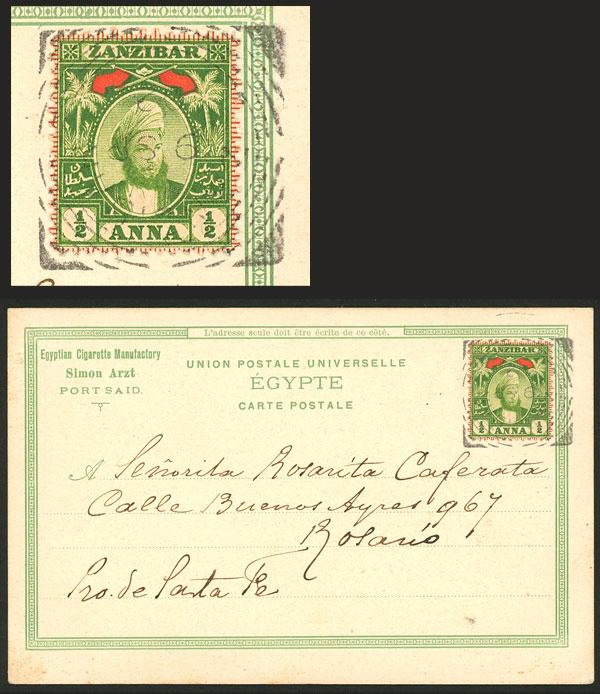 ZANZIBAR
1/2 ANNA 1/2
L'adresse seule doit être écrite de ce côté.
Egyptian Cigarette Manufactory
Simon Arzt
PORT SAID.
UNION POSTALE UNIVERSELLE
ÉGYPTE
CARTE POSTALE
ZANZIBAR
1/2 ANNA 1/2
A Señorita Rosarita Caferata
Calle Buenos Ayres 967
Rosario
Pro. de Santa Fe